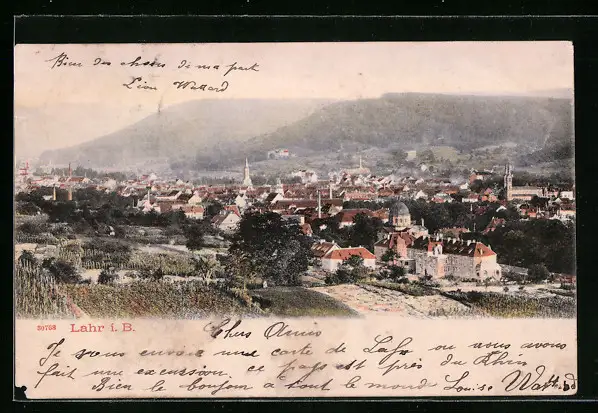 Bien des choses de ma part
Léon
50758 Lahr i. B.
Chers Amis
Je vous envoie une carte de Lahr ou nous avons
fait une excursion. ce pas est près du Rhin
Bien le bonjour à tout le monde Louise